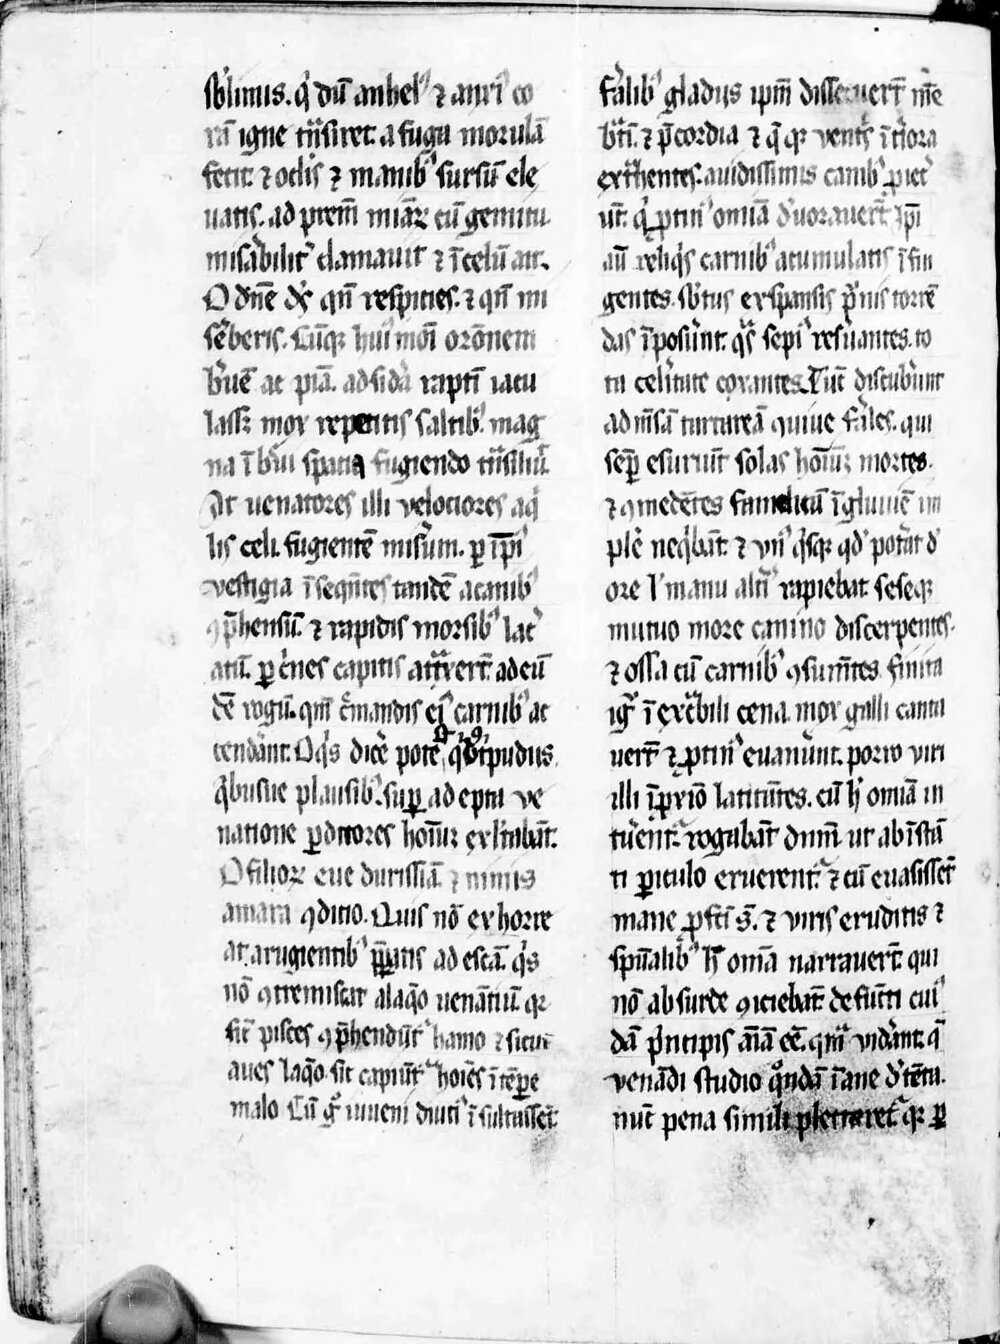 sb̾limis. q̾ dū anhel᷒ ⁊ anxi᷒ co
rā igne trͣnsiret. a fuga morulā
fecit. ⁊ oclis ⁊ manib᷒ sursū ele
uatis. ad prem miāꝝ cū gemitu
misab̾ilit̾ clamauit ⁊ ī celū ait.
O dn̄e ds̄ qn̄ respicies. ⁊ qn̄ mi
se̾beris. Cūqꝫ hui᷒ moī orōnem
b̾uē ac piā.
lassꝫ mox repentis saltib᷒. mag
na ī b̾ui spatia fugiendo
At uenatores illi velociores aq̾
lis celi. fugientē mis̾um. ꝑ ip̄i᷒
vestigia īseqn̄tes tandē a canib᷒
ꝯp̄hensū. ⁊ rapidis morsib᷒ lac̾
atū. ꝑ c̾nes capitis attͣxert̄. ad eū
dē rogū. qm̄ c̾mandis ei᷒ carnib᷒ ac
cendāt. O q̾s dicē potē
q̾busue plausib᷒. suꝑ adepta ve
natione ꝑditores hoīuꝫ
O filioꝝ eue durissīa ⁊ nimis
amara ꝯditio. Quis nō exhorre
at. a rugientib᷒ ad escā. q̾s
nō ꝯtremiscat alaq̄o uenātiū. qꝛ
sic̄ pisces ꝯp̄hendūt᷑ hamo ⁊ sicut
aues laq̄o. sic capiūt᷑ hoīes ī tēꝑe
malo Cū g̊ iuueni diuiti īsultassēt
f̾alib᷒ gladiis ip̄m
bt̄i. ⁊ p̄cordia ⁊ q̄qꝫ vent̾s īt̾iora
extͣhentes. auidissimis canib᷒ ꝓiec̾
ūt. q̾ ꝓtin᷒ om̄ia d̾uorauert̄. Ip̄i
aū reliq̾s carnib᷒ acumulatis īfin
gentes. sb̾tus expansis p̾nis torrē
das īposūnt. q̾s sepi᷒ res̾uantes. to
ta cel̾itate coxantes. Tūc discub̾unt
ad
sēꝑ esuriūt solas hoīuꝫ mortes.
⁊ ꝯmedētes famelicū īgluuiē im
plē neq̾bāt. ⁊ vn᷒ q̾sqꝫ qd̾ pot̾at d̾
ore l᷑ manu alt̾i᷒ rapiebat. seseqꝫ
mutuo more canino discerpentes.
⁊ ossa cū carnib᷒ ꝯsum̄tes. finita
ig̾ ī execͣbili cena. mox galli canta
uert̄ ⁊ ꝓtin᷒ euanūnt. porro viri
illi īꝓxīo latitātes. cū h̾ om̄ia in
tu̾ent᷑. rogabāt dnm̄. ut ab īstā
ti ꝑiculo eruerent᷑. ⁊ cū euasissēt
mane ꝓfc̄i s̄. ⁊ viris eruditis ⁊
spūalib᷒ h̾ om̄a narrauert̄. qui
nō absurde ꝯiciebāt. defūcti cui᷒
dā p̾ncipis aīaꝫ eē. qm̄ vid̾ant. q̄
venādi studio q̊ndā īane d̾tēta.
nūc pena simili plecteret᷑. qꝛ ꝑ